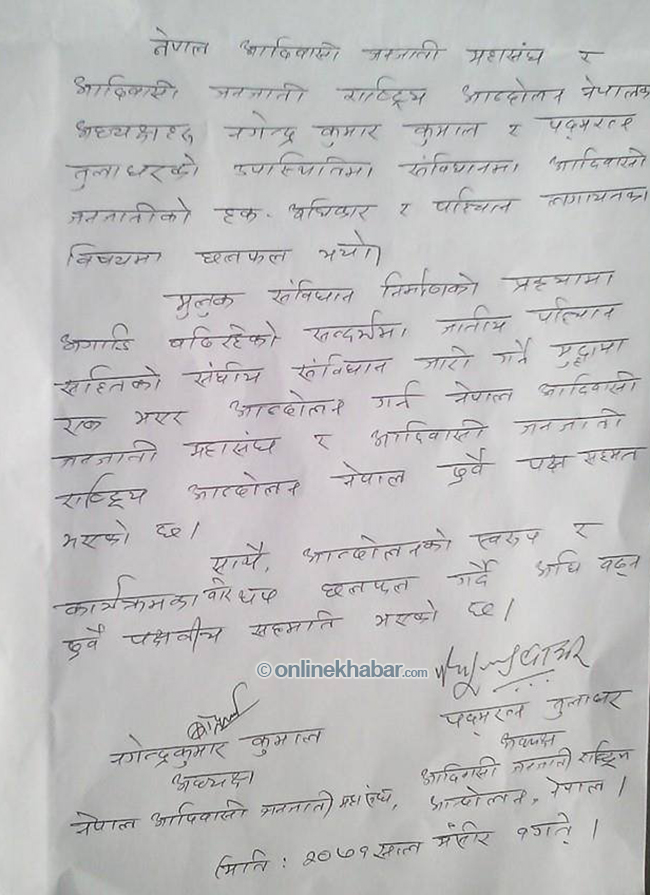 नेपाल आदिवासी जनजाती महासंघ र
आदिवासी जनजाती राष्ट्रिय आन्दोलन नेपालका
अध्यक्षहरु नगेन्द्र कुमार कुमाल र पद्मरत्न
तुलाधरको उपस्थितिमा संविधानमा आदिवासी
जनजातीको हक. अधिकार र पहिचान लगायतका
विषयमा छलफल भयो।
मुलुक संविधान निर्माणको प्रक्रयामा
अगाडि बढिरहेको सन्दर्भमा जातीय पहिचान
सहितको संघीय संविधान जारी गर्ने मुद्दामा
एक भएर आन्दोलन गर्न नेपाल आदिवासी
जनजाती महासंघ र आदिवासी जनजाती
राष्ट्रिय आन्दोलन नेपाल दुवै पक्ष सहमत
भएको छ।
साथै, आन्दोलनको स्वरुप र
कार्यक्रमका छलफल गर्दै अघि बढ्न
दुवै पक्षवीच सहमति भएको छ।
© onlinekhabar.com
नगेन्द्रकुमार कुमाल
अध्यक्ष
नेपाल आदिवासी जनजाती महासंघ,
पद्मरत्न तुलाधर
अध्यक्ष
आदिवासी जनजाती राष्ट्रिय
आन्दोलन, नेपाल।
मिति : २०७१ साल मंसीर १ गते।